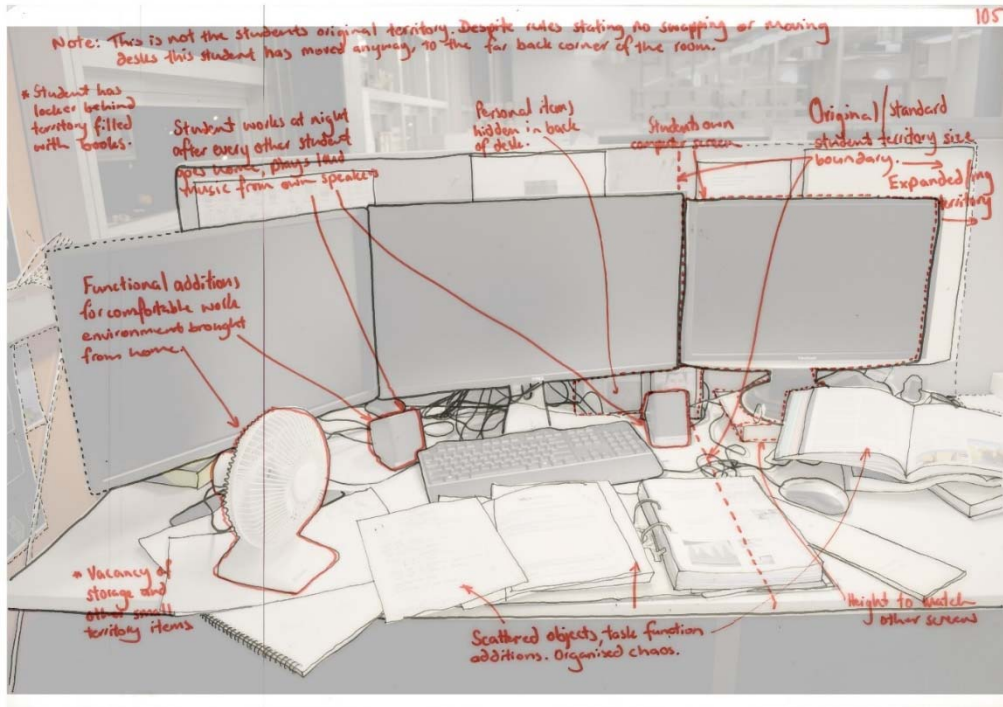 105
Note: This is not the students original territory. Despite rules stating no swapping or moving
desks this student has moved anyway, to the far back corner of the room.
* Student has
locker behind
territory filled
with books.
Student works at night
after every other student
goes home, plays loud
music from own speakers
Personal items
hidden in back
of desk.
Students own
computer screen
Original/standard
student territory size
boundary.
Expanded/ing
territory
Functional additions
for comfortable work
environment brought
from home.
* Vacancy of
storage and
other small
territory items
Scattered objects, task function
additions. Organised chaos.
Height to match
other screens